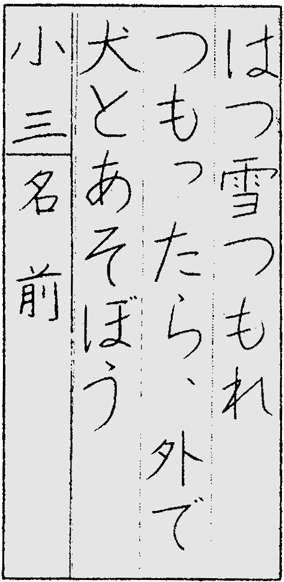 はつ雪つもれ
つもったら、外で
犬とあそぼう
小三
名前